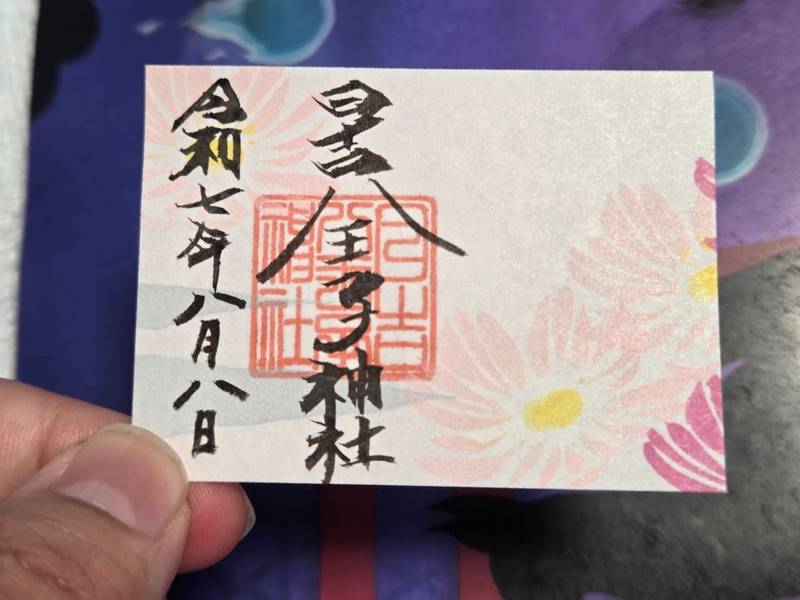 日吉八王子神社
令和七年八月八日
日吉
八王子
神社